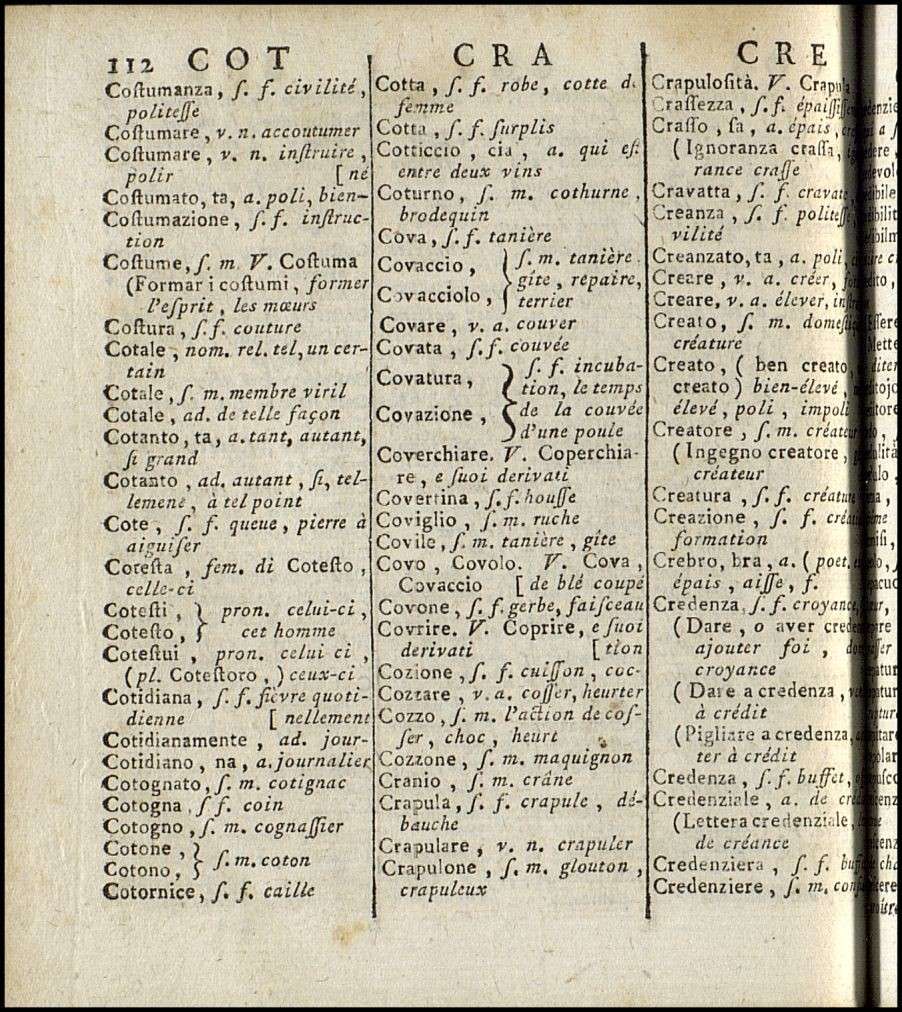 112 COT
Coſtumanza, ſ. f. civilité,
politeſſe
Coſtumare, v. n. accoutumer
Coſtumare, v. n. inſtruire,
polir [né
Coſtumato, ta, a. poli, bien-
Coſtumazione, ſ. f. inſtruc-
tion
Coſtume, ſ. m. V. Coſtuma
(Formar i coſtumi, former
l'eſprit, les mœurs
Coſtura, ſ. f. couture
Cotale, nom. rel. tel, un cer-
tain
Cotale, ſ. m. membre viril
Cotale, ad. de telle façon
Cotanto, ta, a. tant, autant,
ſi grand
Cotanto, ad. autant, ſi, tel-
lement, à tel point
Cote, ſ. f. queue, pierre à
aiguiſer
Coteſta, fem. di Coteſto,
celle-ci
Coteſti, } pron. celui-ci,
Coteſto, } cet homme
Coteſtui, pron. celui ci,
(pl. Coteſtoro,) ceux-ci
Cotidiana, ſ. f. fièvre quoti-
dienne [nellement
Cotidianamente, ad. jour-
Cotidiano, na, a. journalier
Cotognato, ſ. m. cotignac
Cotogna, ſ f. coin
Cotogno, ſ. m. cognaſſier
Cotone, }
Cotono, } ſ. m. coton
Cotornice, ſ. f. caille
CRA
Cotta, ſ. f. robe, cotte de
femme
Cotta, ſ. f. ſurplis
Cotticcio, cia, a. qui eſt
entre deux vins
Coturno, ſ. m. cothurne,
brodequin
Cova, ſ. f. tanière
Covaccio, } ſ. m. tanière,
gîte, repaire,
Covacciolo, } terrier
Covare, v. a. couver
Covata, ſ. f. couvée
Covatura, } ſ. f. incuba-
tion, le temps
Covazione, } de la couvée
d'une poule
Coverchiare. V. Coperchia-
re, e ſuoi derivati
Covertina, ſ. f. houſſe
Coviglio, ſ. m. ruche
Covile, ſ. m. tanière, gîte
Covo, Covolo. V. Cova,
Covaccio [de blé coupé
Covone, ſ. f. gerbe, faiſceau
Covrire. V. Coprire, e ſuoi
derivati [tion
Cozione, ſ. f. cuiſſon, coc-
Cozzare, v. a. coſſer, heurter
Cozzo, ſ. m. l'action de coſ-
ſer, choc, heurt
Cozzone, ſ. m. maquignon
Cranio, ſ. m. crâne
Crapula, ſ. f. crapule, dé-
bauche
Crapulare, v. n. crapuler
Crapulone, ſ. m. glouton,
crapuleux
CRE
Crapuloſità. V.
Craſſezza, ſ. f.
Craſſo, ſa, a. épais,
(Ignoranza craſſa,
rance craſſe
Cravatta, ſ. f. cravate
Creanza, ſ. f. politeſſe
vilité
Creanzato, ta, a. poli,
Creare, v. a. créer,
Creare, v. a. élever,
Creato, ſ. m.
créature
Creato, (ben creato,
creato) bien-élevé,
élevé, poli, impoli
Creatore, ſ. m. créateur
(Ingegno creatore,
créateur
Creatura, ſ. f. créature
Creazione, ſ. f.
formation
Crebro, bra, a. (poet.
épais, aiſſe, f.
Credenza, ſ. f. croyance,
(Dare, o aver
ajouter foi,
croyance
(Dare a credenza,
à crédit
(Pigliare a credenza,
ter à crédit
Credenza, ſ. f. buffet,
Credenziale, a. de
(Lettera credenziale,
de créance
Credenziera, ſ. f.
Credenziere, ſ. m.